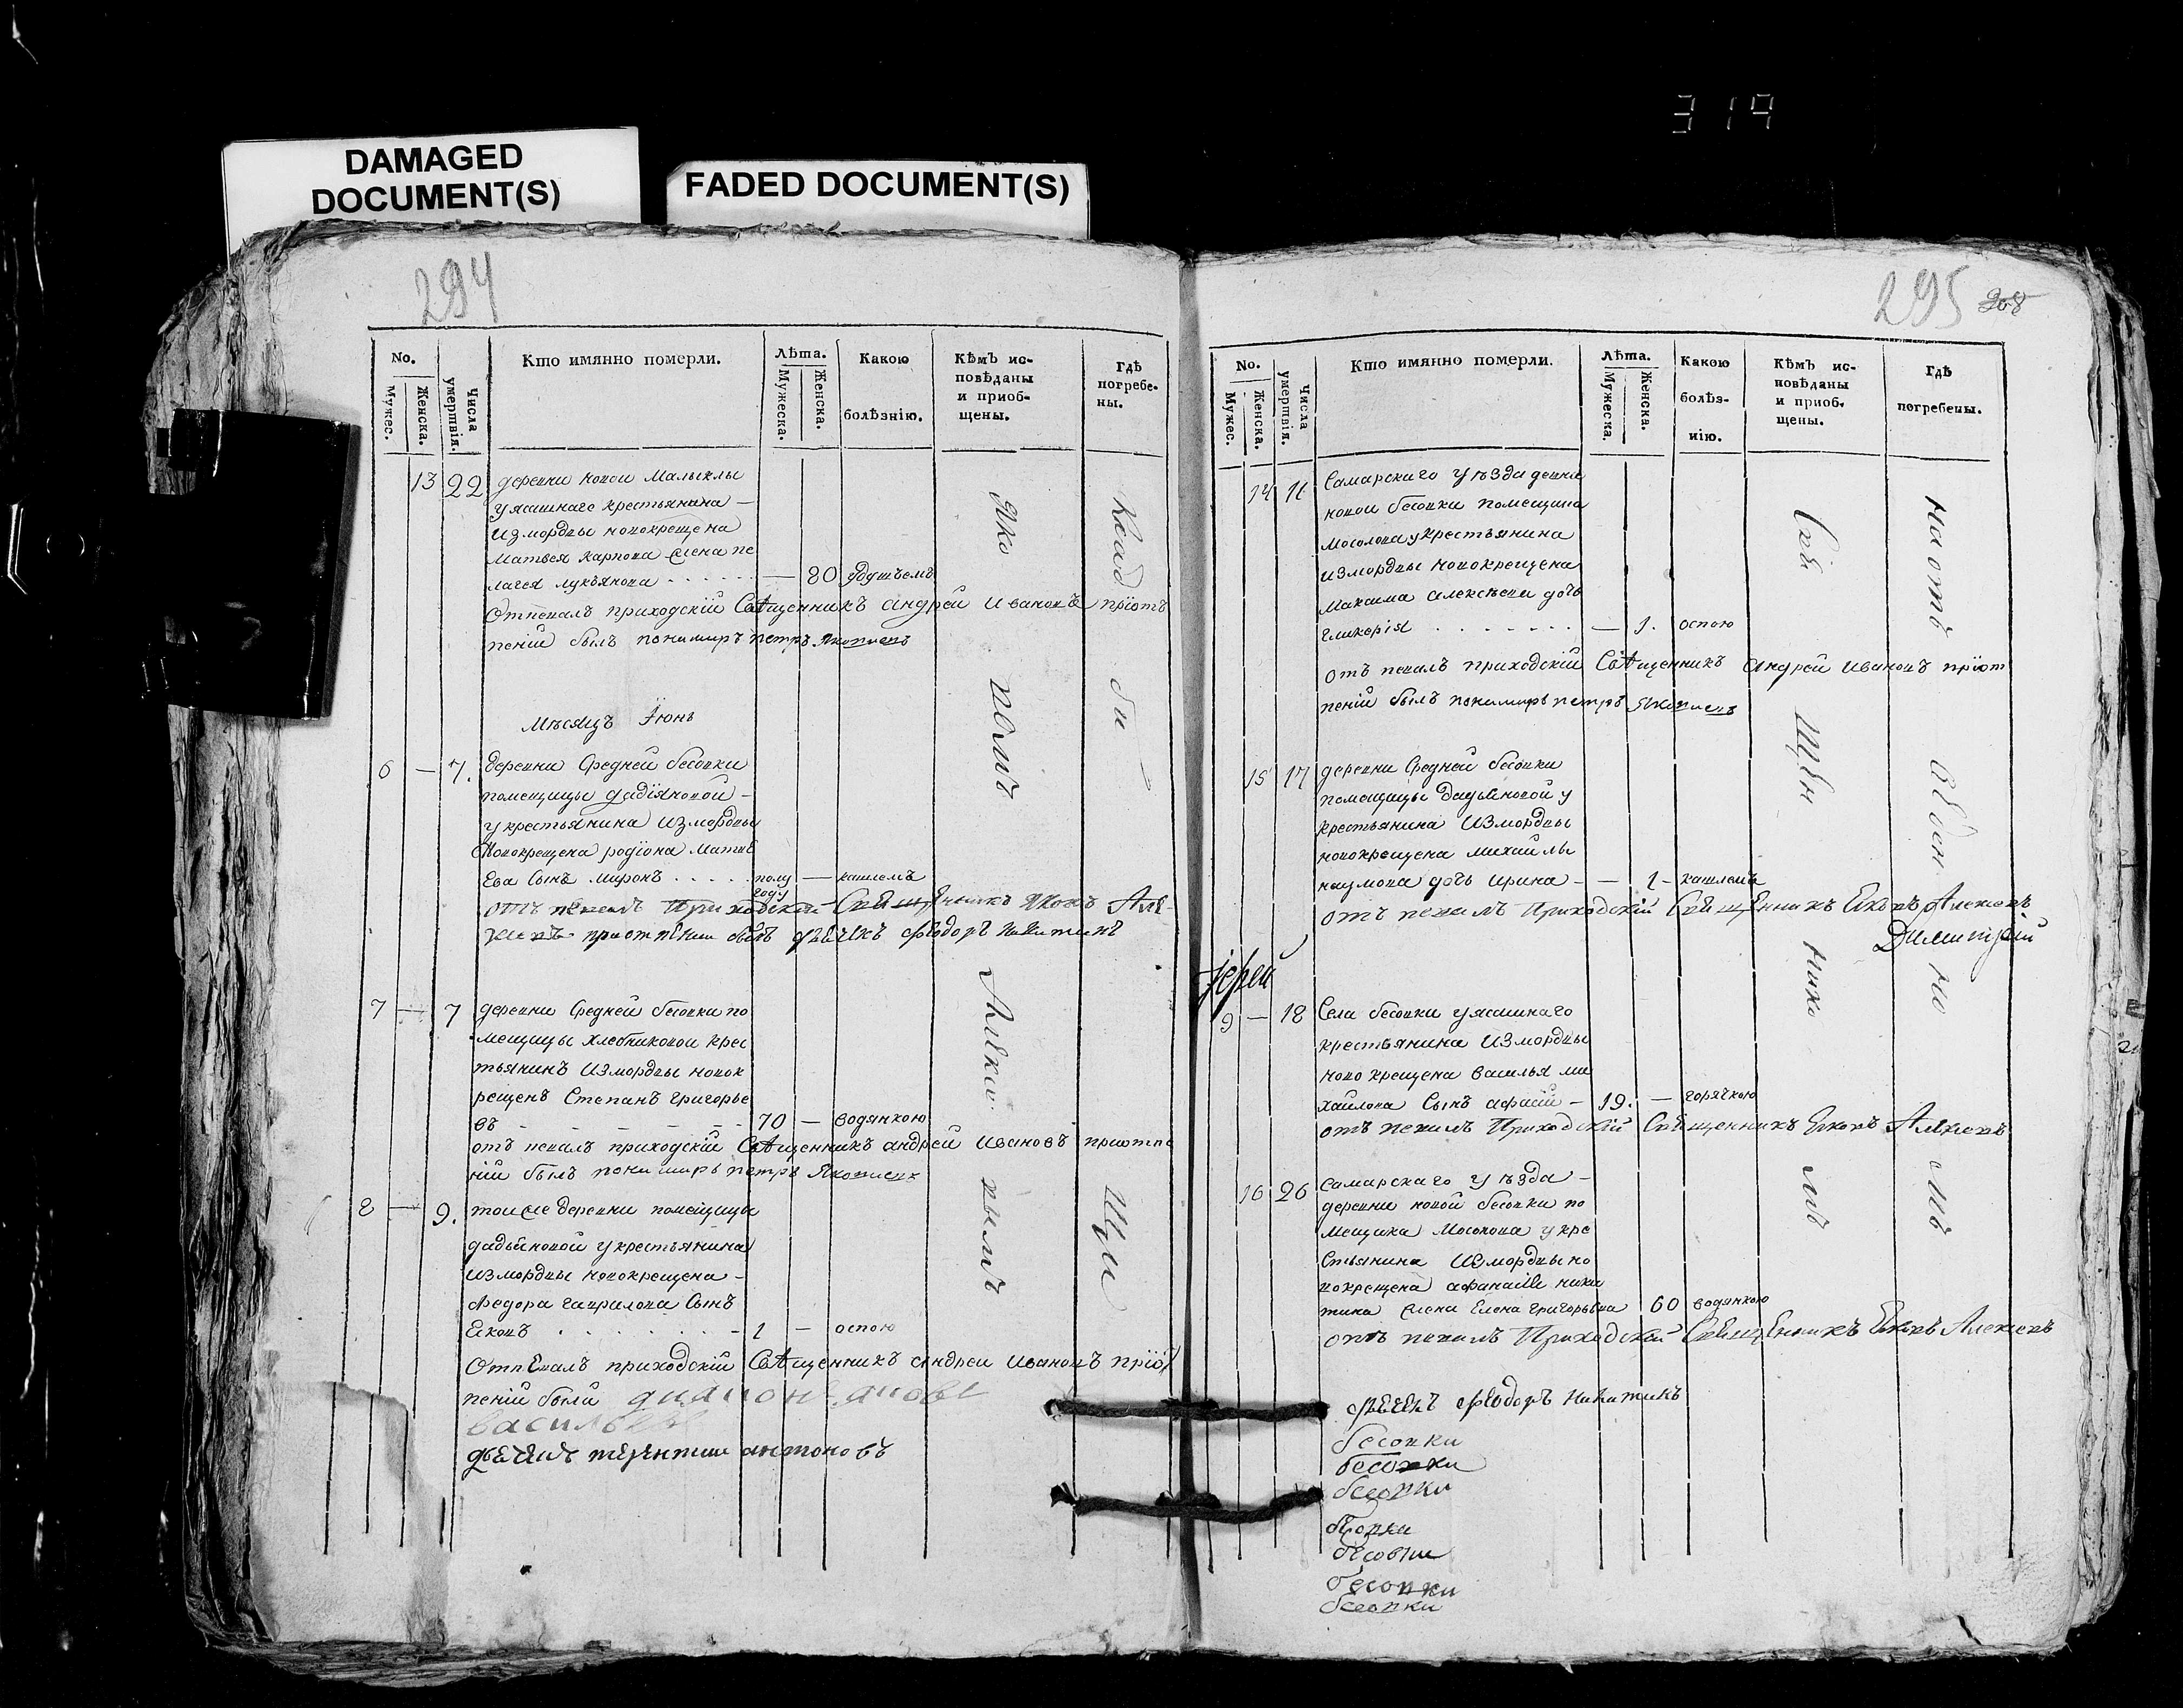 319
DAMAGED
DOCUMENT(S)
FADED DOCUMENT(S)
294
No.
Мужес.
Женска.
Числа умертвія.
Кто имянно померли.
Лѣта.
Мужеска.
Женска.
Какою
болѣзнію.
Кѣмъ ис-
повѣданы
и приоб-
щены.
Гдѣ
погребе-
ны.
13 22 деревни новои Малыклы
у ясашнаго крестьянина —
измордвы новокрещена
Матвея карпова жена пе
лагея лукьянова — 80
Отпевалъ приходскій Священникъ андрей Ивановъ пріотъ
пеніи былъ понимирь петръ Яковлевъ
Мѣсяцъ Іюнь
6 — 7. деревни Средней бесовки
помещицы дадїяновой —
у крестьянина Измордвы
Новокрещена родїона Матве
ева Сынъ миронъ полу году — кашлемъ
отъ певалъ Приходскій Священникъ Яковъ Але
приотпении былъ дьечекъ Феодоръ Никитинъ
7 — 7 деревни Средней бесовки по
мещицы хлебниковои крес
тьянинъ Измордвы новок
рещенъ Степанъ Григорье
въ 70 — водянкою
отъ певалъ приходскій Священникъ андрей Ивановъ приотпе
ніи былъ понимирь петръ Яковлевъ
8 — 9. тоиже деревни помещицы
дадьяновой у крестьянина
измордвы новокрещена —
Федора гаврилова Сынъ
Яковъ 1 — оспою
Отпевалъ приходскій Священникъ андреи Ивановъ пріо
пеніи были
васильев
дьечекъ терентии антоновъ
Яко
вомъ
Алекси
вымъ
Клад
би
щи
295
308
No.
Мужес.
Женска.
Числа умертвія.
Кто имянно померли.
Лѣта.
Мужеска.
Женска.
Какою
болѣз-
нію.
Кѣмъ ис-
повѣданы
и приоб-
щены.
Гдѣ
погребены.
14 11 Самарскаго уѣзда девни
новои бесовки помещика
мосолова у крестьянина
измордвы новокрещена
Максима алексѣева дочь
гликерїя — 1. оспою
отъ певалъ приходскїй Священникъ Андрей Ивановъ прїот
пенїй былъ понимирь петръ Яковлевъ
15 17 деревни Средней бесовки
помещицы дадьяновой у
крестьянина Измордвы
новокрещена михайлы
наумова дочь ирина — 1 — кашлемъ
отъ певалъ Приходскїй Священникъ Яковъ Алексеевъ
Димитрїй
Іерей
9 — 18 Села бесовки у ясашнаго
крестьянина Измордвы
ново крещена василья ми
хайлова Сынъ 19. — горячкою
отъ певалъ Приходскїй Священникъ Яковъ Алексеевъ
16 26 Самарскаго уѣзда —
деревни новой бесовки по
мещика Мосолова у кре
стьянина Измордвы но
вокрещена афанасия ники
тина жена Елена Григорьева 60 водянкою
отъ певалъ Приходскїй Священникъ Яковъ Алексеевъ
дьечекъ Феодоръ Никитинъ
бесовки
бесовки
бесовки
бесовки
бесовки
бесовки
бесовки
Свя
щен
нико
мъ
Наотъ
веден
но
мъ